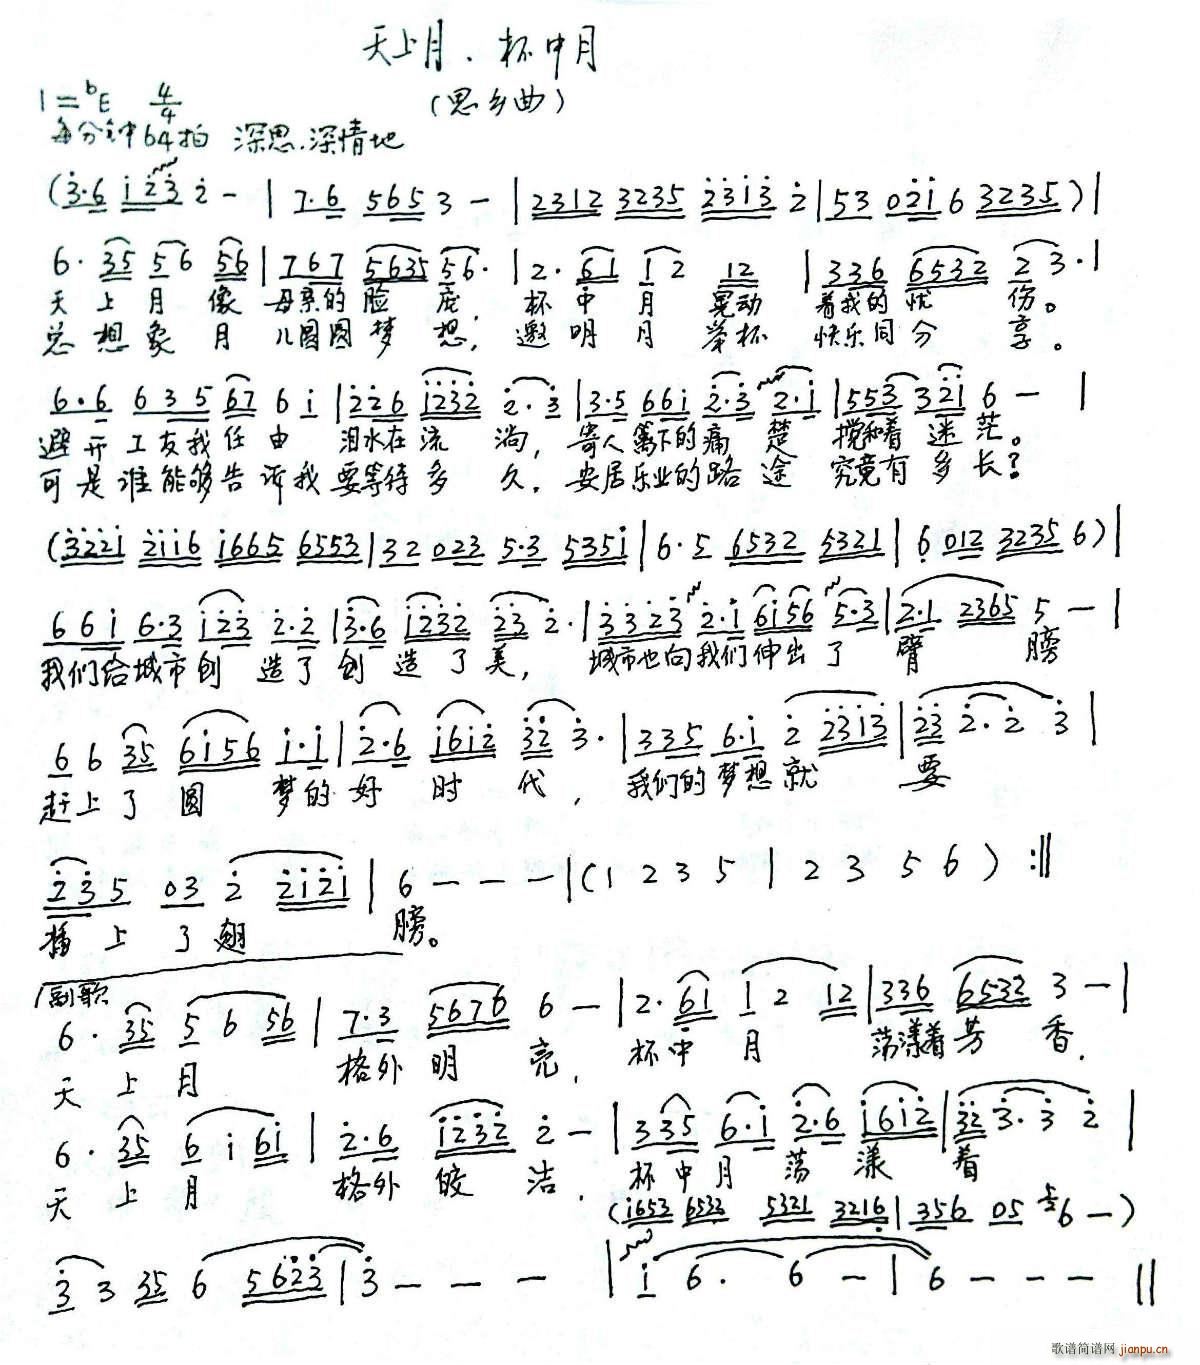 天上月．杯中月
(思乡曲)
1=bE 4/4
每分钟64拍 深思.深情地
(3·6 123 2 - | 7·6 565 3 - | 2312 3235 2313 2 | 53 021 6 3235) |
6· 35 56 56 | 767 5635 56· | 2· 61 12 12 | 336 6532 23· |
天 上 月 像 母亲的 脸 庞, 杯 中 月 晃动 着我的 忧 伤。
总 想 象 月 儿圆圆 梦 想, 邀 明 月 举杯 快乐同 分 享。
6·6 635 67 6 1 | 226 1232 2·3 | 3·5 661 2·3 2·1 | 553 321 6 - |
避 开 工 友我 任 由 泪水在 流 淌, 寄人篱下的痛 楚 搅和着 迷 茫。
可 是 谁 能够 告 诉我 要等待 多 久, 安居乐业的路 途 究竟有 多 长?
(3221 2116 1665 6553 | 32 023 5·3 5351 | 6·5 6532 5321 | 6 012 3235 6) |
661 6·3 123 2·2 | 3·6 1232 23 2· | 3323 2·1 6156 5·3 | 2·1 2365 5 - |
我们给城市创 造了 创 造 了 美, 城市也向我们伸出了 臂 膀
6 6 35 6156 1·1 | 2·6 1612 32 3· | 335 6·1 2 2313 | 23 2·2 3 |
赶上了 圆 梦的 好 时 代, 我们的 梦想就 要
235 03 2 2121 | 6 - - - | (1 2 3 5 | 2 3 5 6) :||
插 上 了翅 膀。
副歌
6· 35 5 6 56 | 7·3 5676 6 - | 2· 61 1 2 12 | 336 6532 3 - |
天 上 月 格外 明 亮, 杯中 月 荡漾着 芳 香,
6· 35 6 1 61 | 2·6 1232 2 - | 335 6·1 2·6 1612 | 32 3·3 2 |
天 上 月 格外 皎 洁, 杯中月 荡 漾 着
(1653 6533 5321 3216 | 356 05 56 -)
3 3 35 6 5623 | 3 - - - | 1 6· 6 - | 6 - - - ||
歌谱简谱网 jianpu.cn